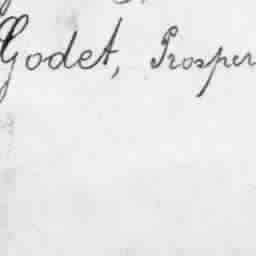 Godet, Prosper